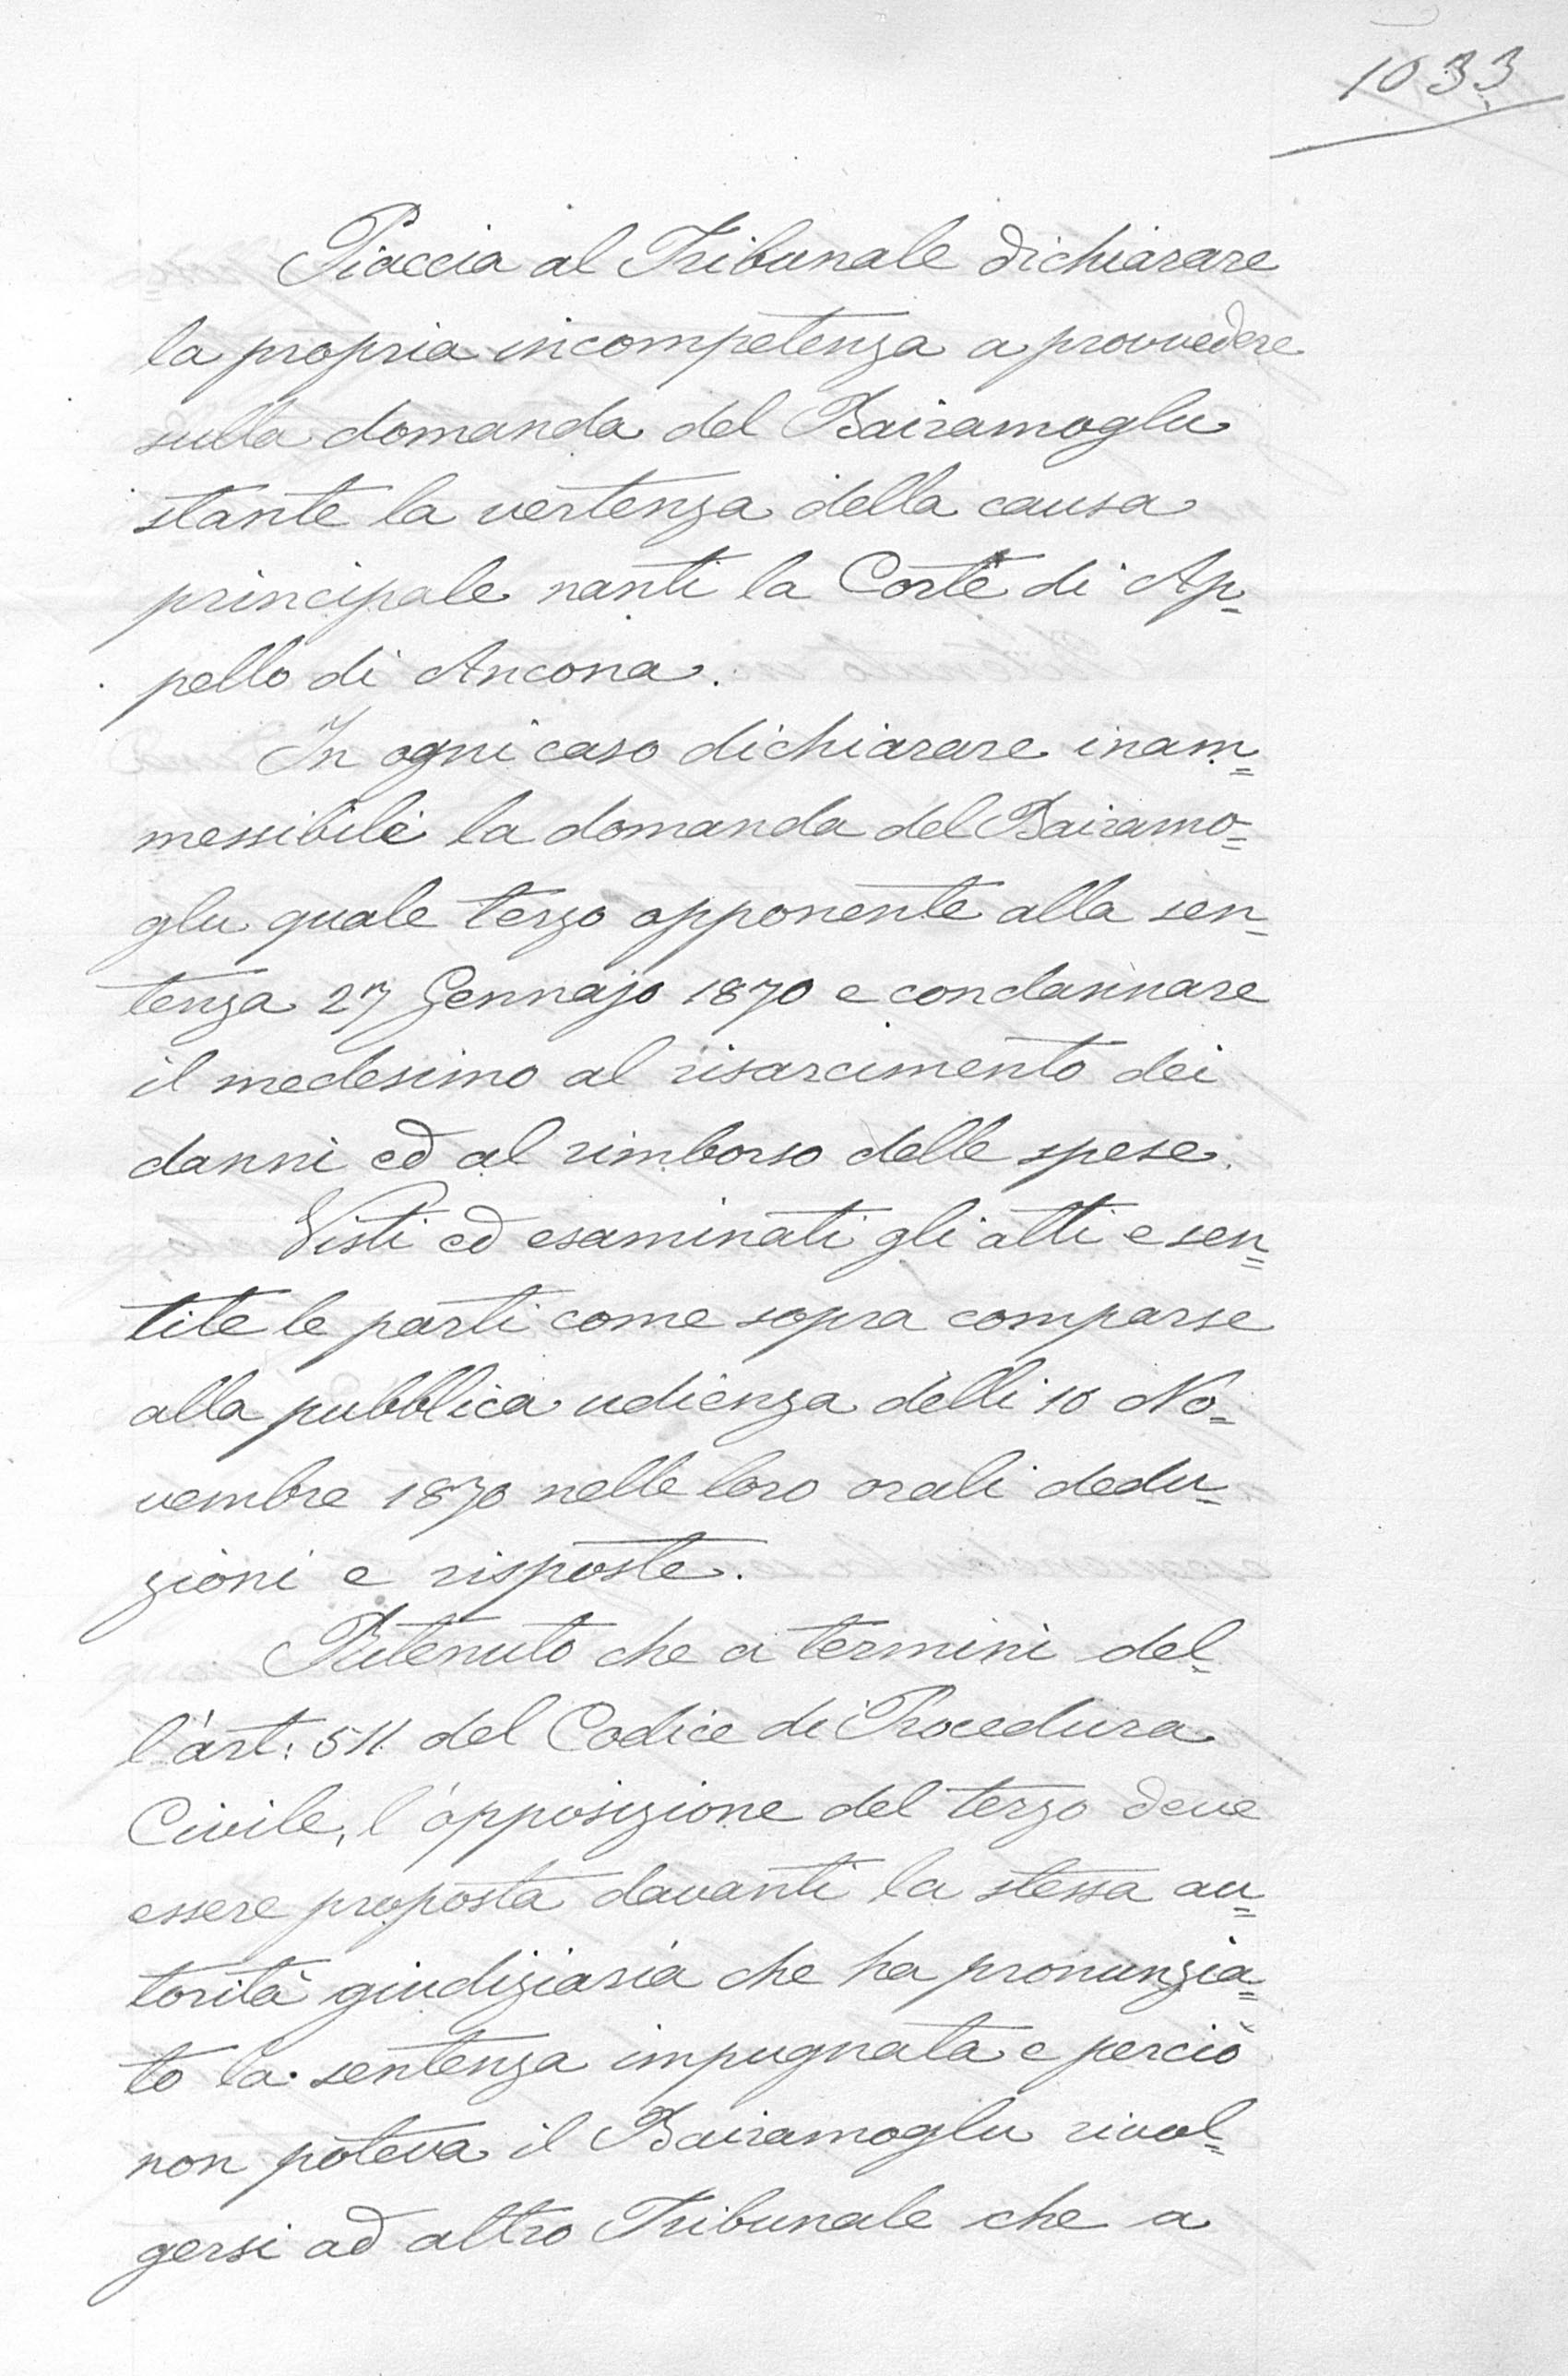 1033
Piaccia al Tribunale dichiarare
la propria incompetenza a provvedere
sulla domanda del Bairamoglu
stante la vertenza della causa
principale nanti la Corte di Ap-
pello di Ancona.
In ogni caso dichiarare inam=
messibile la domanda del Bairamo=
glu quale terzo opponente alla sen-
tenza 27 Gennajo 1870 e condannare
il medesimo al risarcimento dei
danni ed al rimborso delle spese.
Visti ed esaminati gli atti e sen=
tite le parti come sopra comparse
alla pubblica udienza delli 10 No=
vembre 1870 nelle loro orali dedu-
zioni e risposte.
Ritenuto che a termini del-
l'art: 511 del Codice di Procedura
Civile, l'opposizione del terzo deve
essere proposta davanti la stessa au=
torità giudiziaria che ha pronunzia=
to la sentenza impugnata e perciò
non poteva il Bairamoglu rivol=
gersi ad altro Tribunale che a